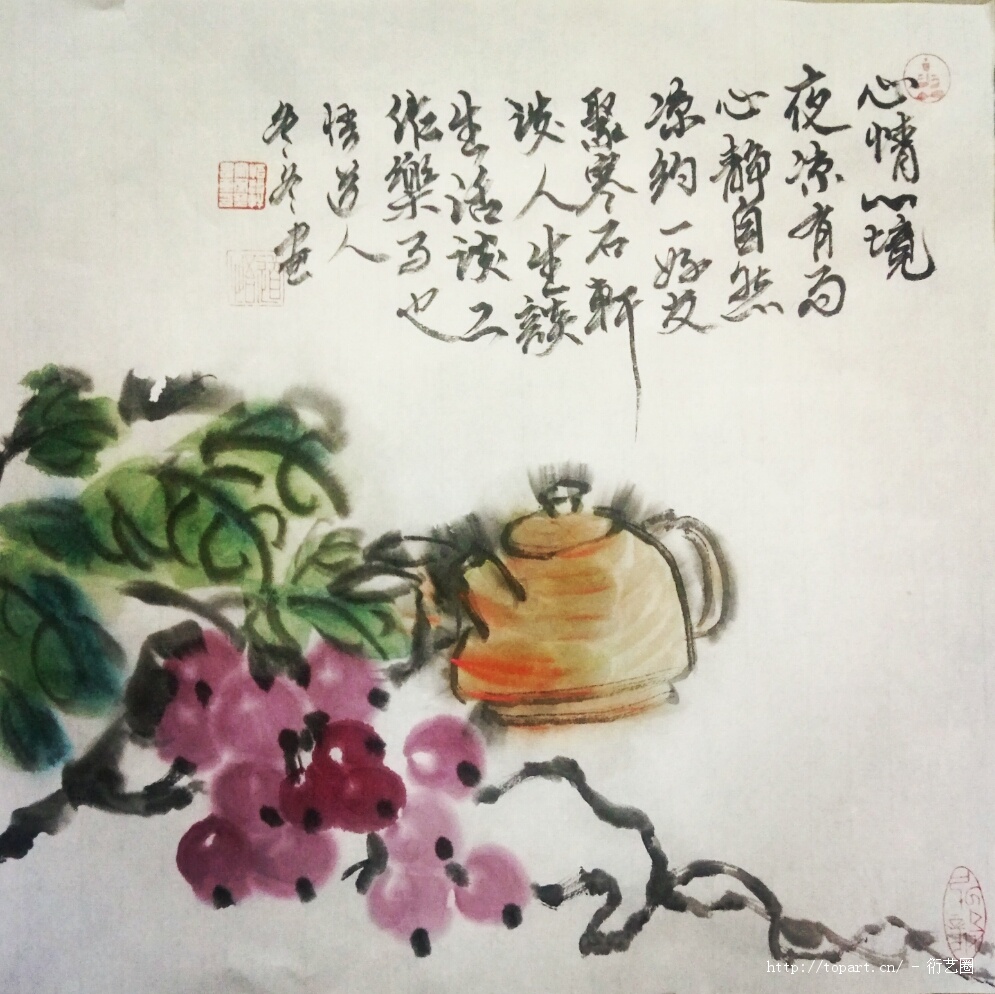 心情心境
夜凉有
心静自然
凉约一好友
聚寒石軒
谈人生談
生活谈工
作樂也
悟道人
冬冬画
http://topart.cn/ - 衍艺圈